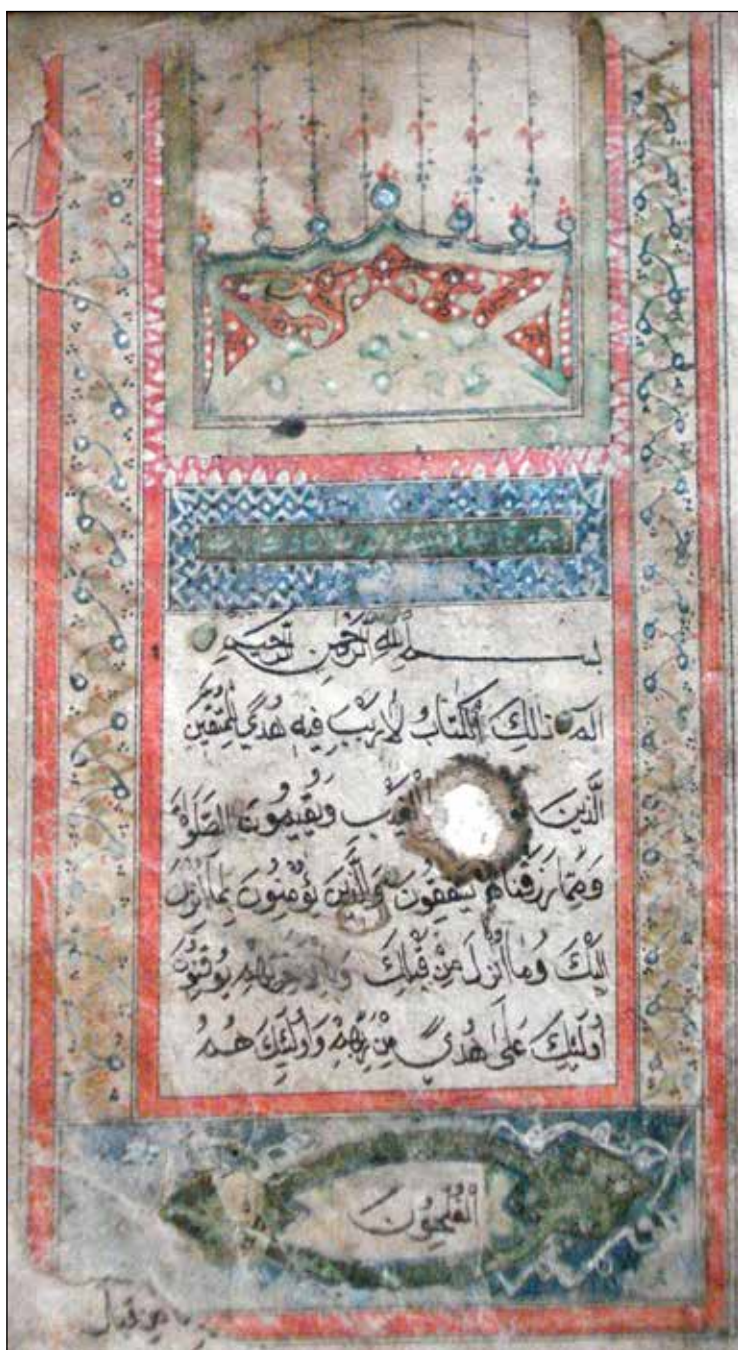 بسم الله الرحمن الرحيم
الم ذالك الكتاب لا ريب فيه هدي للمتقين
الذين الغيب ويقيمون الصلوة
ومما رزقناهم ينفقون والذين يؤمنون بما انزل
اليك وما انزل من قبلك وبالاخرة هم يوقنون
أولئك على هدي من ربهم وأولئك هم
المفلحون